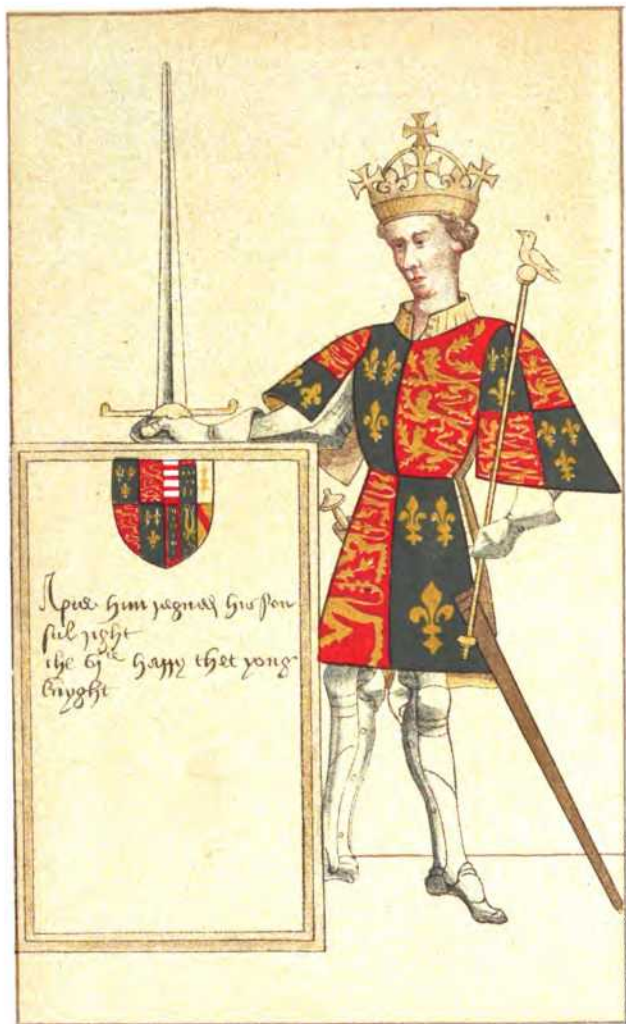 him regned his son
ful right
the 6te harry thet yong
knyght